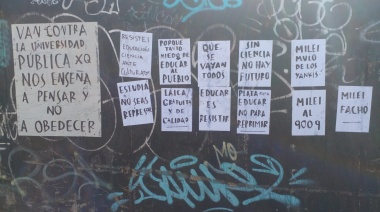 VAN CONTRA
LA UNIVERSIDAD
PÚBLICA XQ
NOS ENSEÑA
A PENSAR Y
NO
A OBEDECER
RESISTE!
EDUCACIÓN
CIENCIA
ARTE
CULTURA
ESTUDIÁ
NO SEAS
REPRESOR
PORQUE
TANTO
MIEDO DE
EDUCAR
AL
PUEBLO
LAICA
GRATUITA
Y DE
CALIDAD
QUE
SE
VAYAN
TODOS
EDUCAR
ES
RESISTIR
SIN
CIENCIA
NO HAY
FUTURO
PLATA PARA
EDUCAR
NO PARA
REPRIMIR
MILEI
MULO
DE LOS
YANKIS
MILEI
AL
9009
MILEI
FACHO